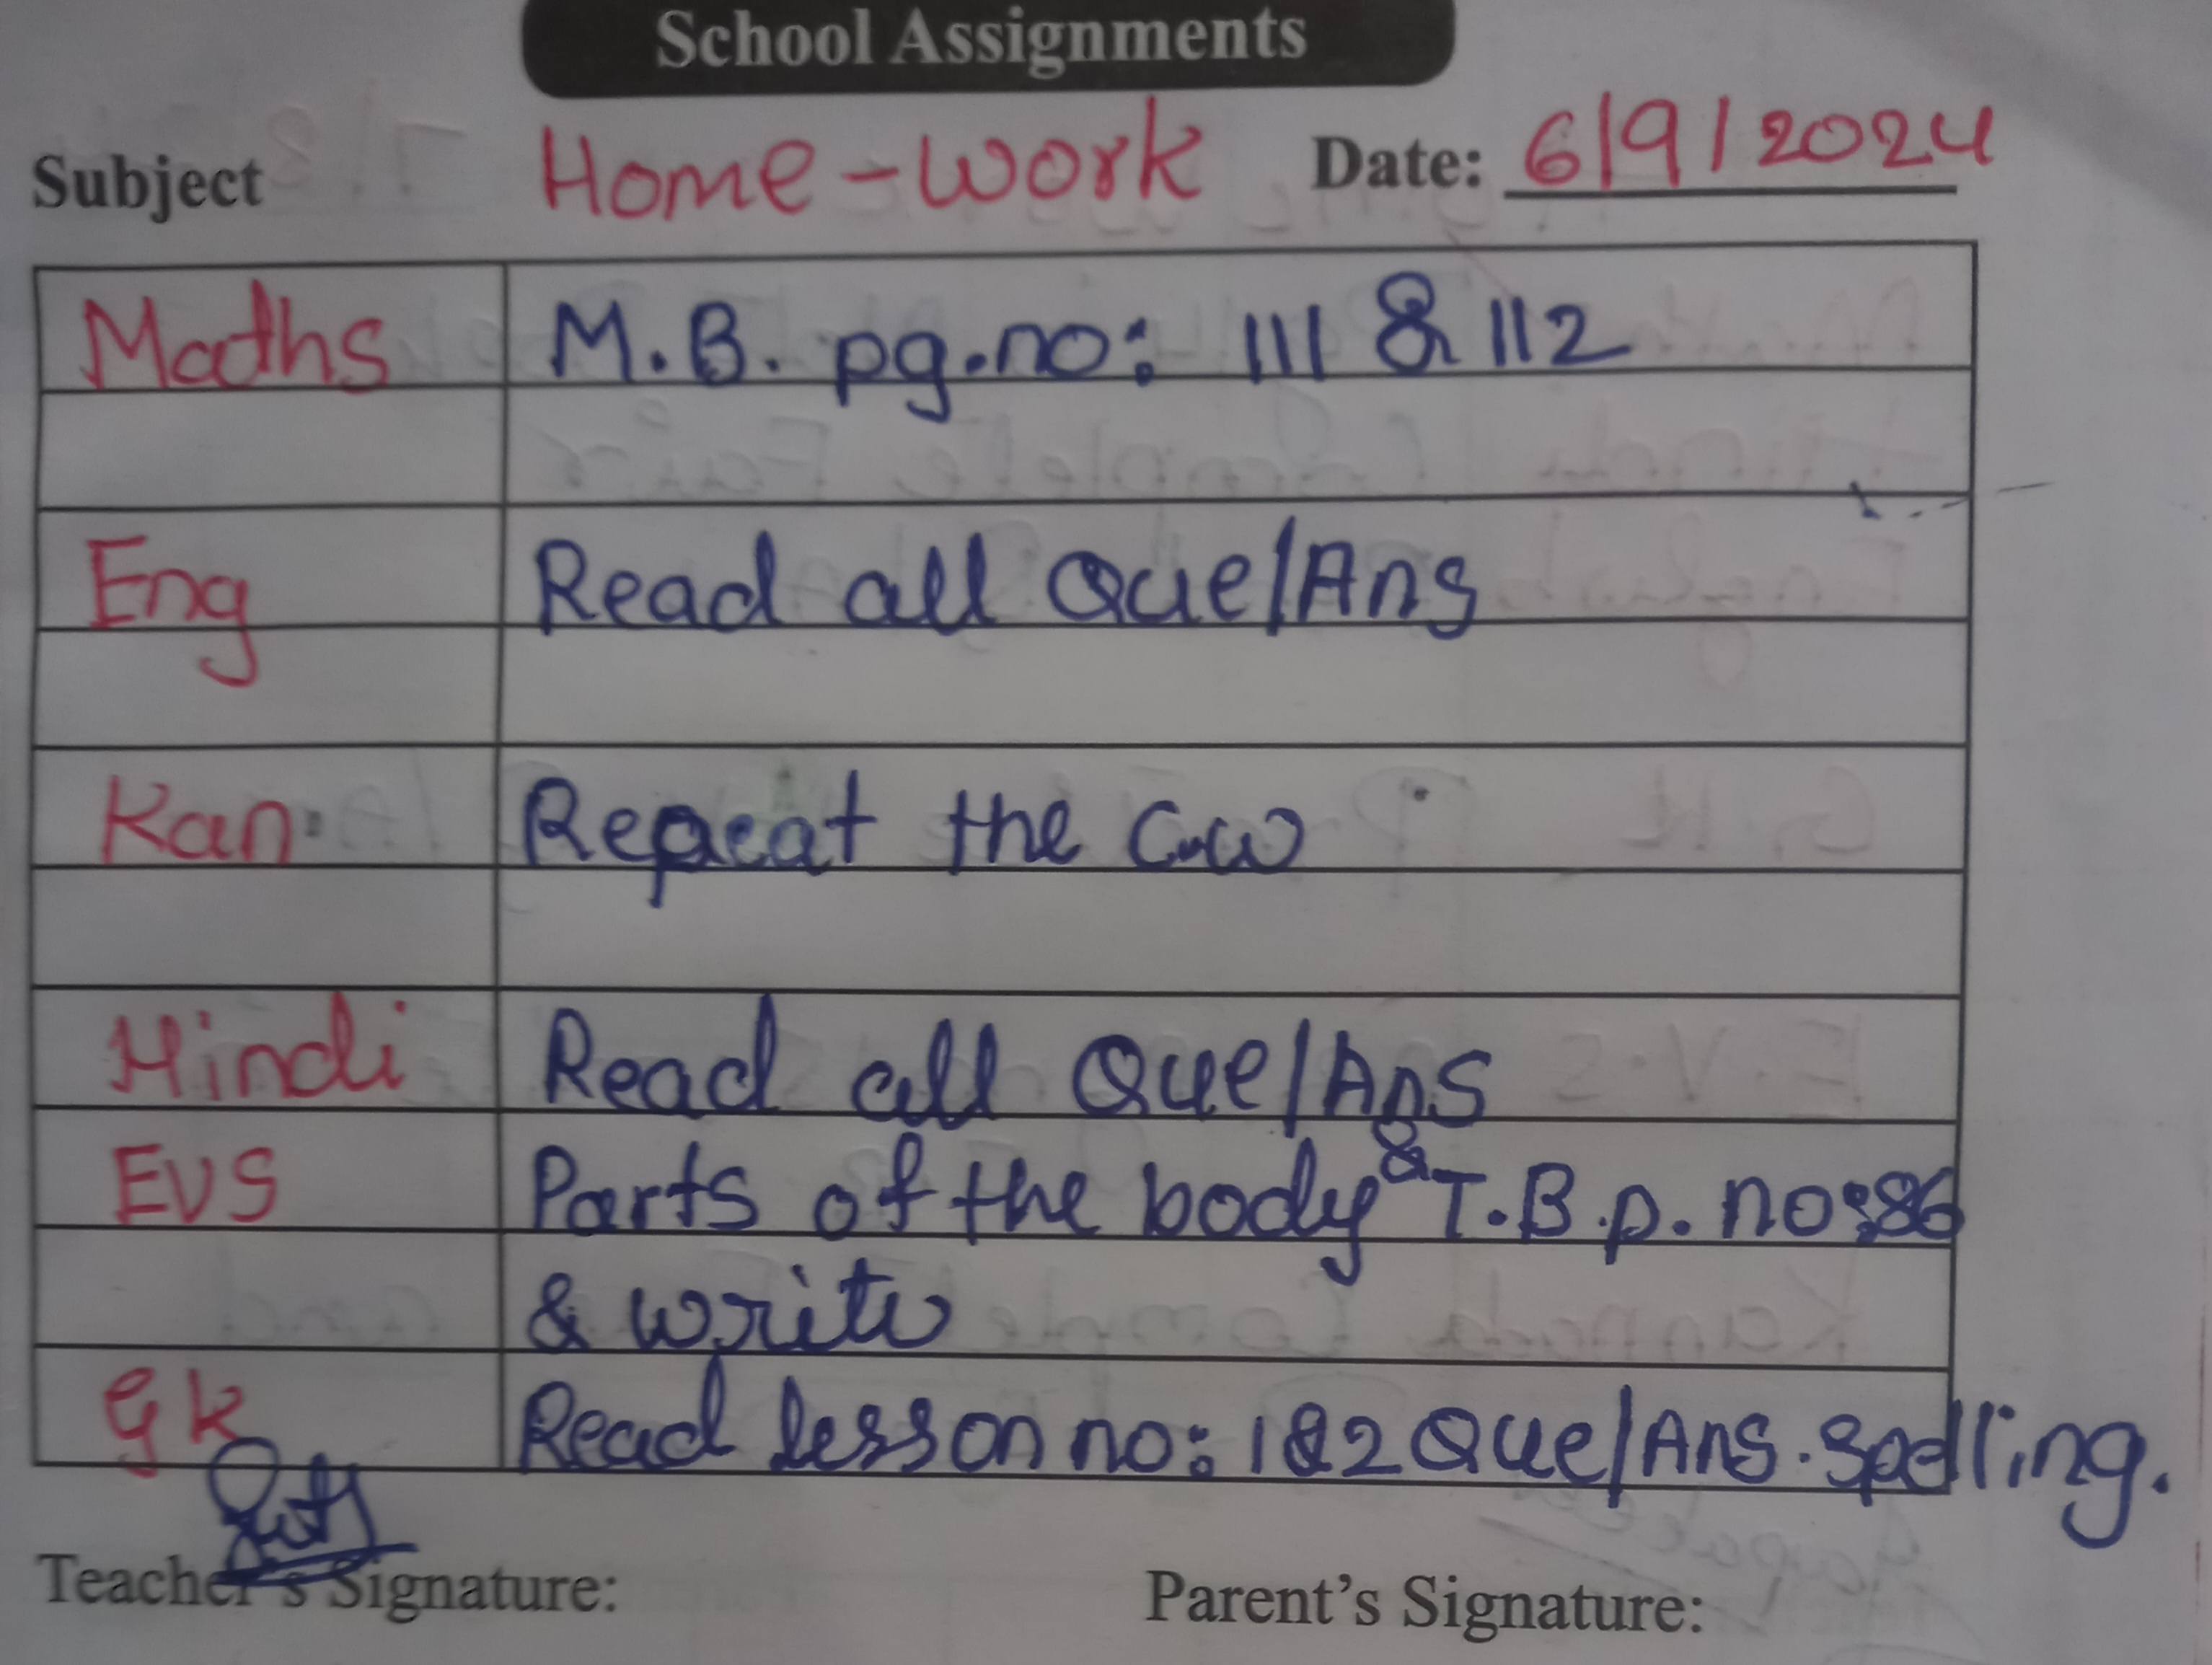 School Assignments
Subject Home-work Date: 6/9/2024
Maths M.B. pg.no: 111 & 112
Eng Read all Que/Ans
Kan. Repeat the C.w
Hindi Read all Que/Ans
EVS Parts of the body & T.B.p. no:86
& write
GK Read lesson no: 1&2 Que/Ans. Spelling.
Teacher's Signature: Parent's Signature: